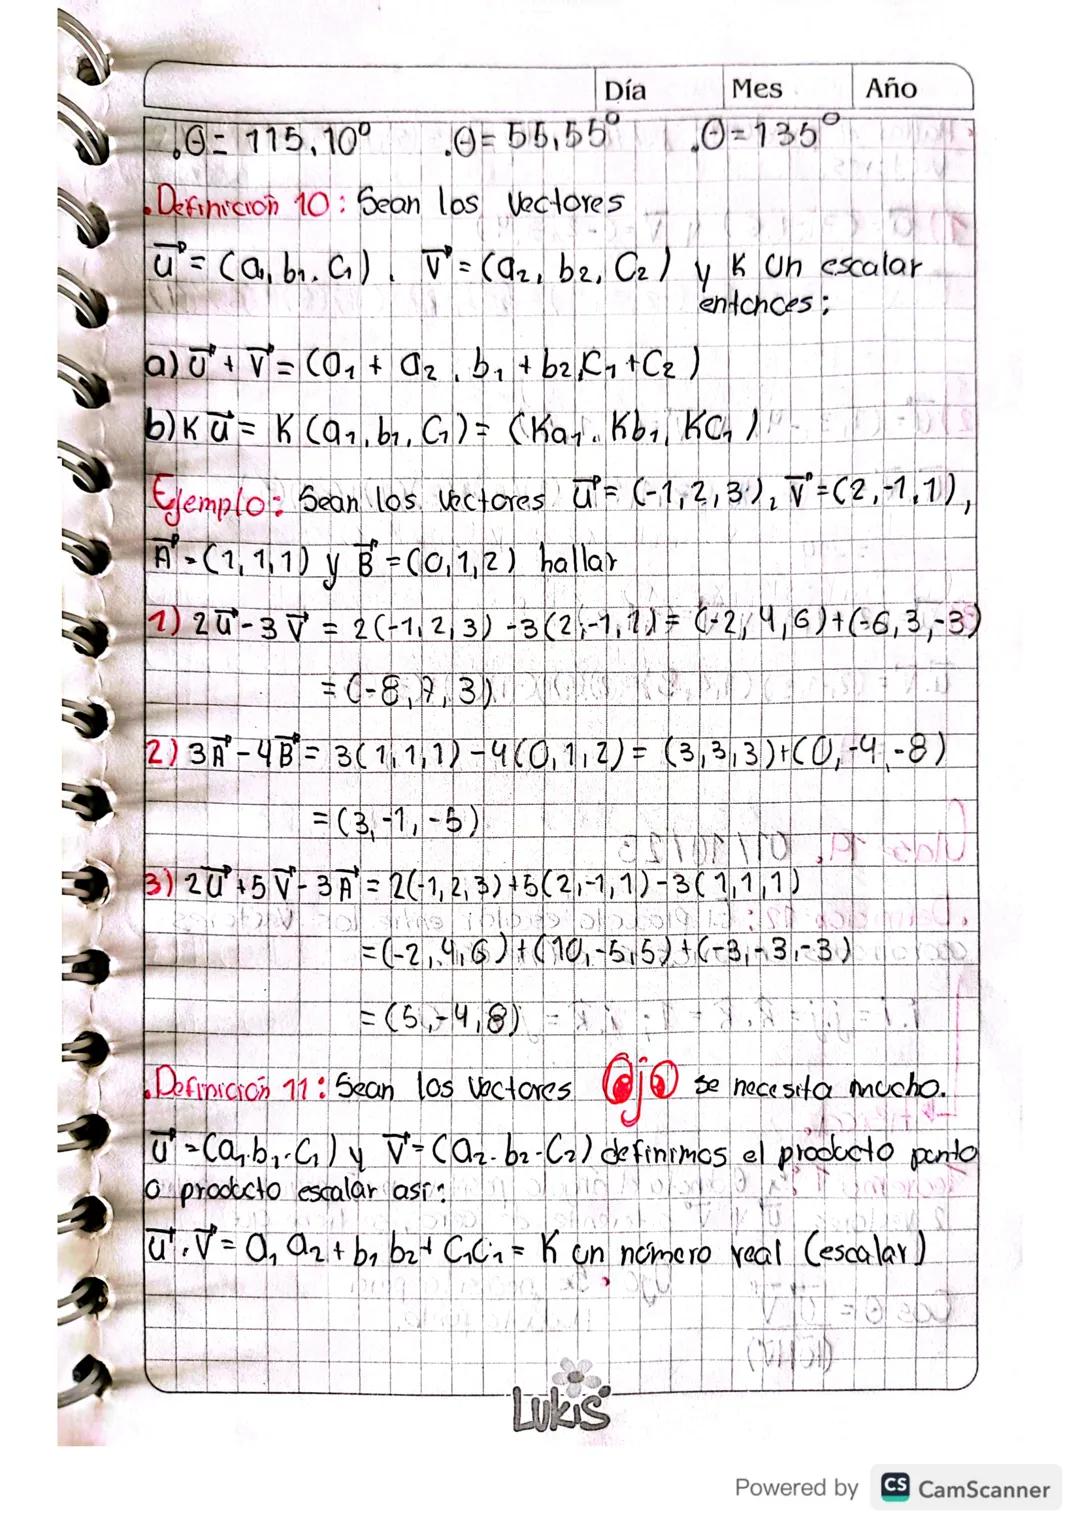 Día Mes Año
.θ= 115,10° .θ= 55,55° .θ=135°
.Definición 10: Sean los vectores
u⃗ = (a₁, b₁, c₁), v⃗ = (a₂, b₂, c₂) y K un escalar
entonces:
a) u⃗ + v⃗ = (a₁ + a₂, b₁ + b₂, c₁ + c₂)
b) K u⃗ = K (a₁, b₁, c₁) = (Ka₁, Kb₁, Kc₁)
Ejemplo: Sean los vectores u⃗ = (-1,2,3), v⃗ = (2,-1,1),
A⃗ = (1,1,1) y B⃗ = (0,1,2) hallar
1) 2u⃗ - 3v⃗ = 2(-1,2,3) -3(2,-1,1) = (-2,4,6)+(-6,3,-3)
= (-8,7,3)
2) 3A⃗ - 4B⃗ = 3(1,1,1) -4(0,1,2) = (3,3,3)+(0,-4,-8)
= (3,-1,-5)
3) 2u⃗ + 5v⃗ - 3A⃗ = 2(-1,2,3)+5(2,-1,1)-3(1,1,1)
= (-2,4,6)+(10,-5,5)+(-3,-3,-3)
= (5,-4,8)
.Definición 11: Sean los vectores Ojo se necesita mucho.
u⃗ = (a₁.b₁.c₁) y v⃗ = (a₂.b₂.c₂) definimos el producto punto
o producto escalar así:
u⃗ . v⃗ = a₁ a₂ + b₁ b₂ + c₁c₁ = K un número real (escalar)
LUKIS
Powered by CS CamScanner